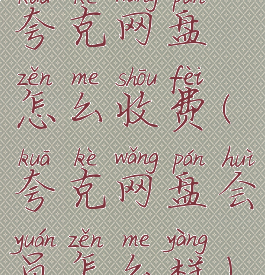 kuā kè wǎng pán
夸克网盘
zěn me shōu fèi
怎么收费(
kuā kè wǎng pán huì
夸克网盘会
yuán zěn me yàng
员怎么样)